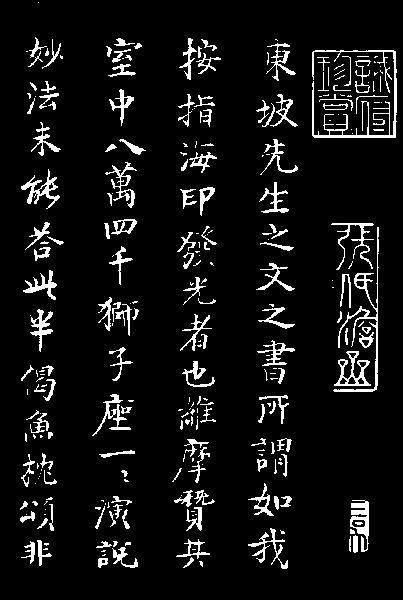 東坡先生之文之書所謂如我
按指海印發光者也維摩贊其
室中八萬四千獅子座一一演說
妙法未能荅此半偈魚枕頌非